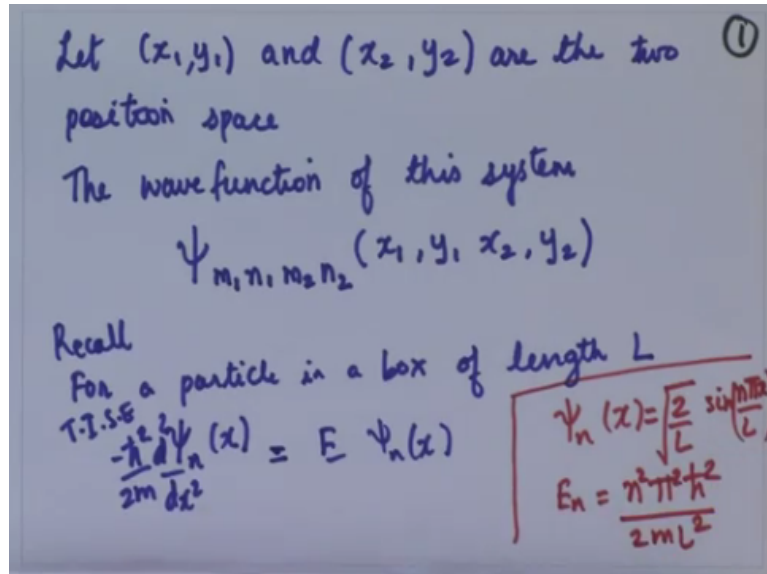 Let (x₁,y₁) and (x₂,y₂) are the two ①
position space
The wavefunction of this system
Ψ m₁n₁m₂n₂ (x₁,y₁ x₂,y₂)
Recall
For a particle in a box of length L
T.I.S.E
-ħ²/2m d²Ψₙ(x)/dx² = E Ψₙ(x)
Ψₙ(x) = √(2/L) sin(nπx/L)
Eₙ = n²π²ħ²/2mL²